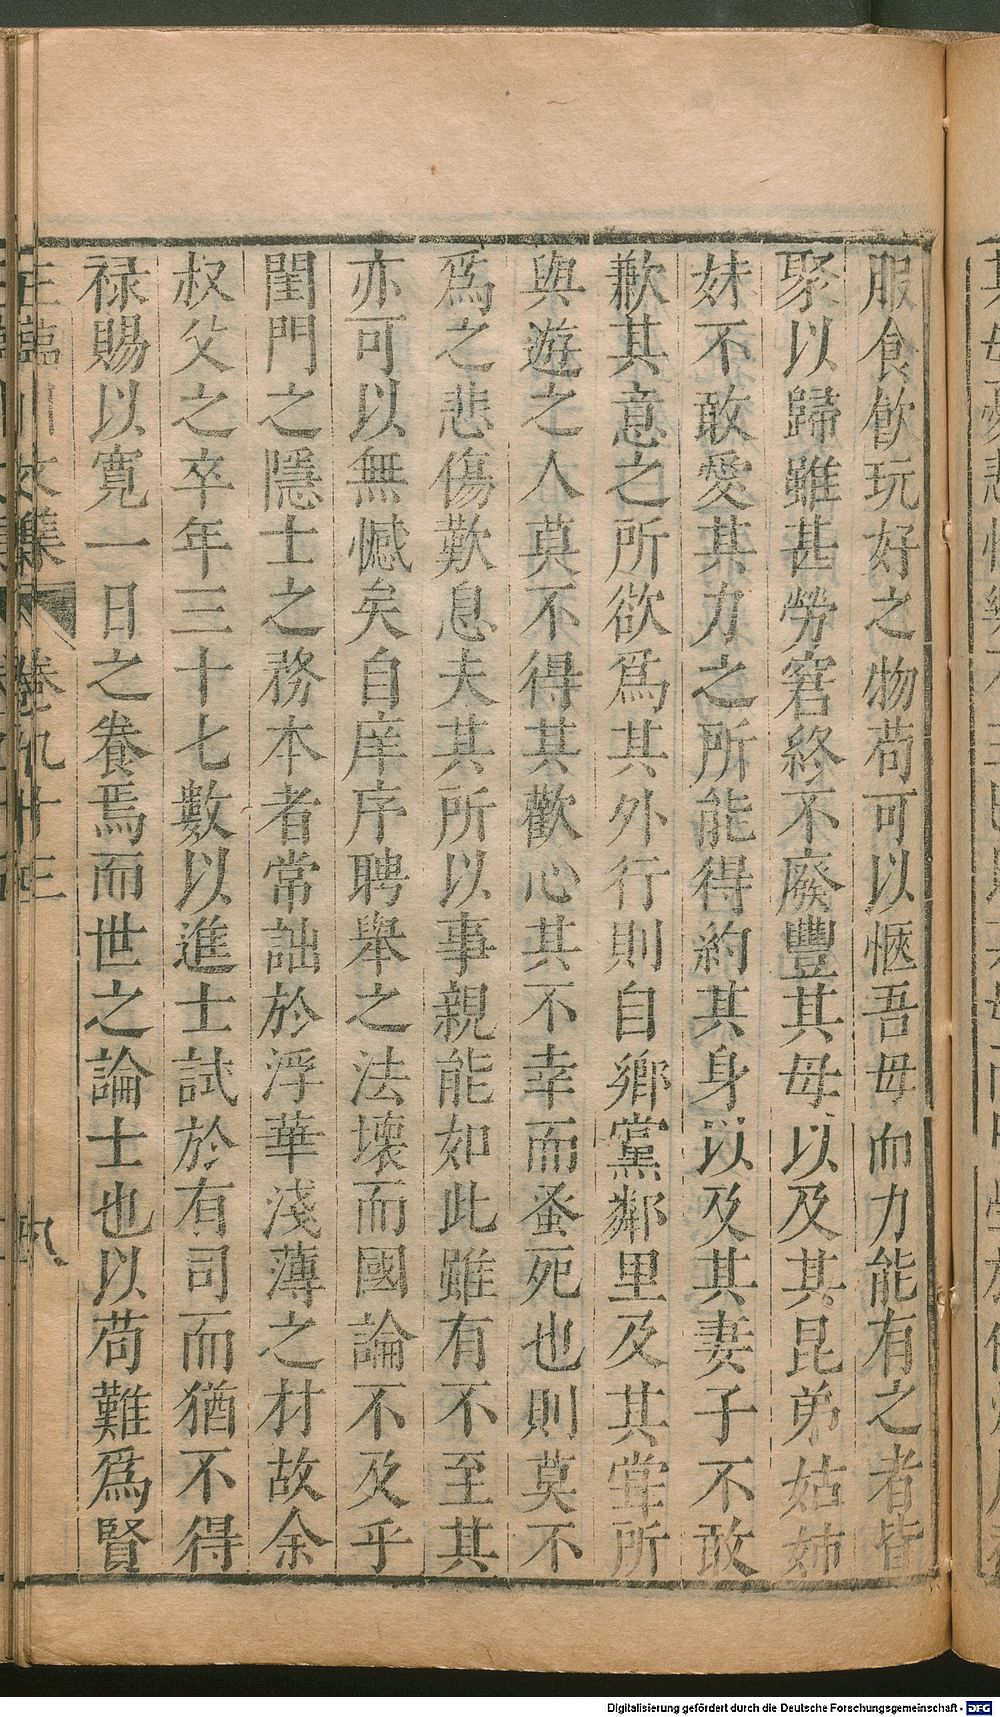 服食飲玩好之物苟可以愜吾母而力能有之者皆
聚以歸雖甚勞窘終不廢豐其母以及其昆弟姑姊
妹不敢愛其力之所能得約其身以及其妻子不敢
歉其意之所欲爲其外行則自鄉黨鄰里及其嘗所
與遊之人莫不得其歡心其不幸而蚤死也則莫不
爲之悲傷歎息夫其所以事親能如此雖有不至其
亦可以無憾矣自庠序聘舉之法壞而國論不及乎
閨門之隱士之務本者常詘於浮華淺薄之材故余
叔父之卒年三十七數以進士試於有司而猶不得
祿賜以寬一日之養焉而世之論士也以苟難爲賢
王臨川文集 卷九十三
Digitalisierung gefördert durch die Deutsche Forschungsgemeinschaft - DFG